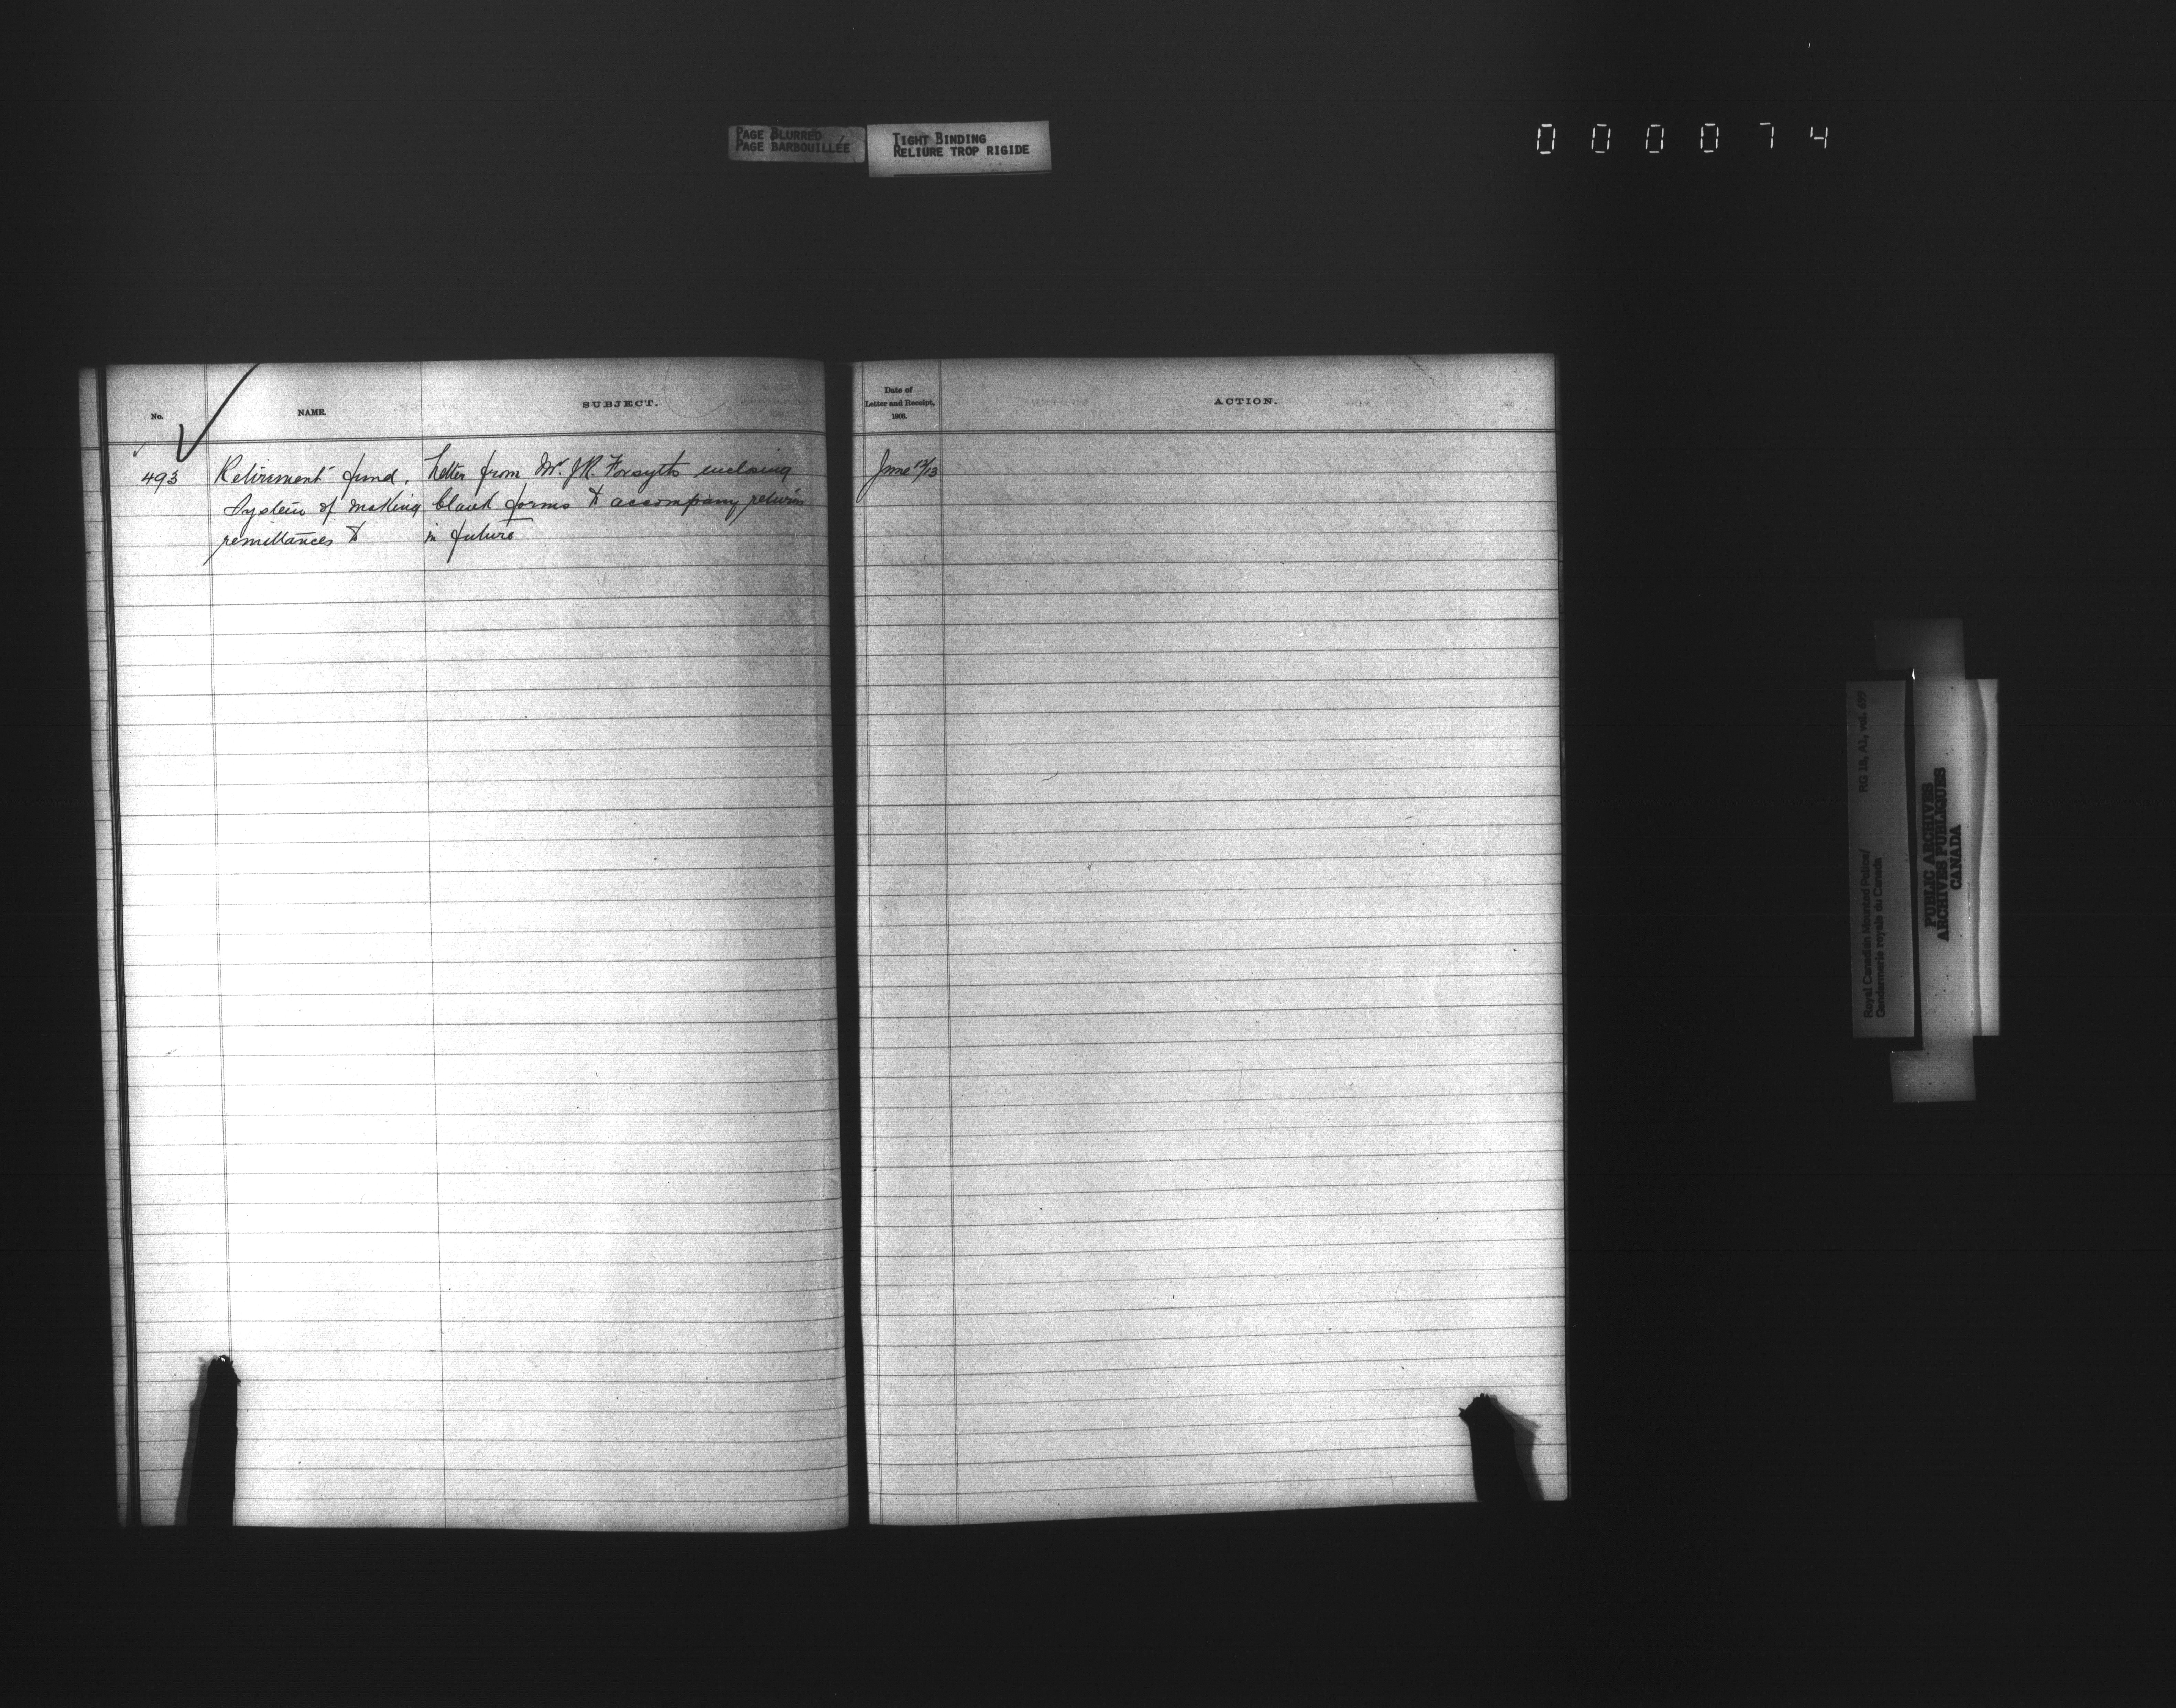 PAGE BLURRED
PAGE BARBOUILLÉE
TIGHT BINDING
RELIURE TROP RIGIDE
000074
No.
NAME.
SUBJECT.
Date of
Letter and Receipt,
1908.
ACTION.
493
Retirement fund.
System of making
remittances to
Letter from Mr. J.R. Forsyth enclosing
blank forms to accompany returns
in future
June 12/13
Royal Canadian Mounted Police/
Gendarmerie royale du Canada
RG 18, A1, vol. 699
PUBLIC ARCHIVES
ARCHIVES PUBLIQUES
CANADA